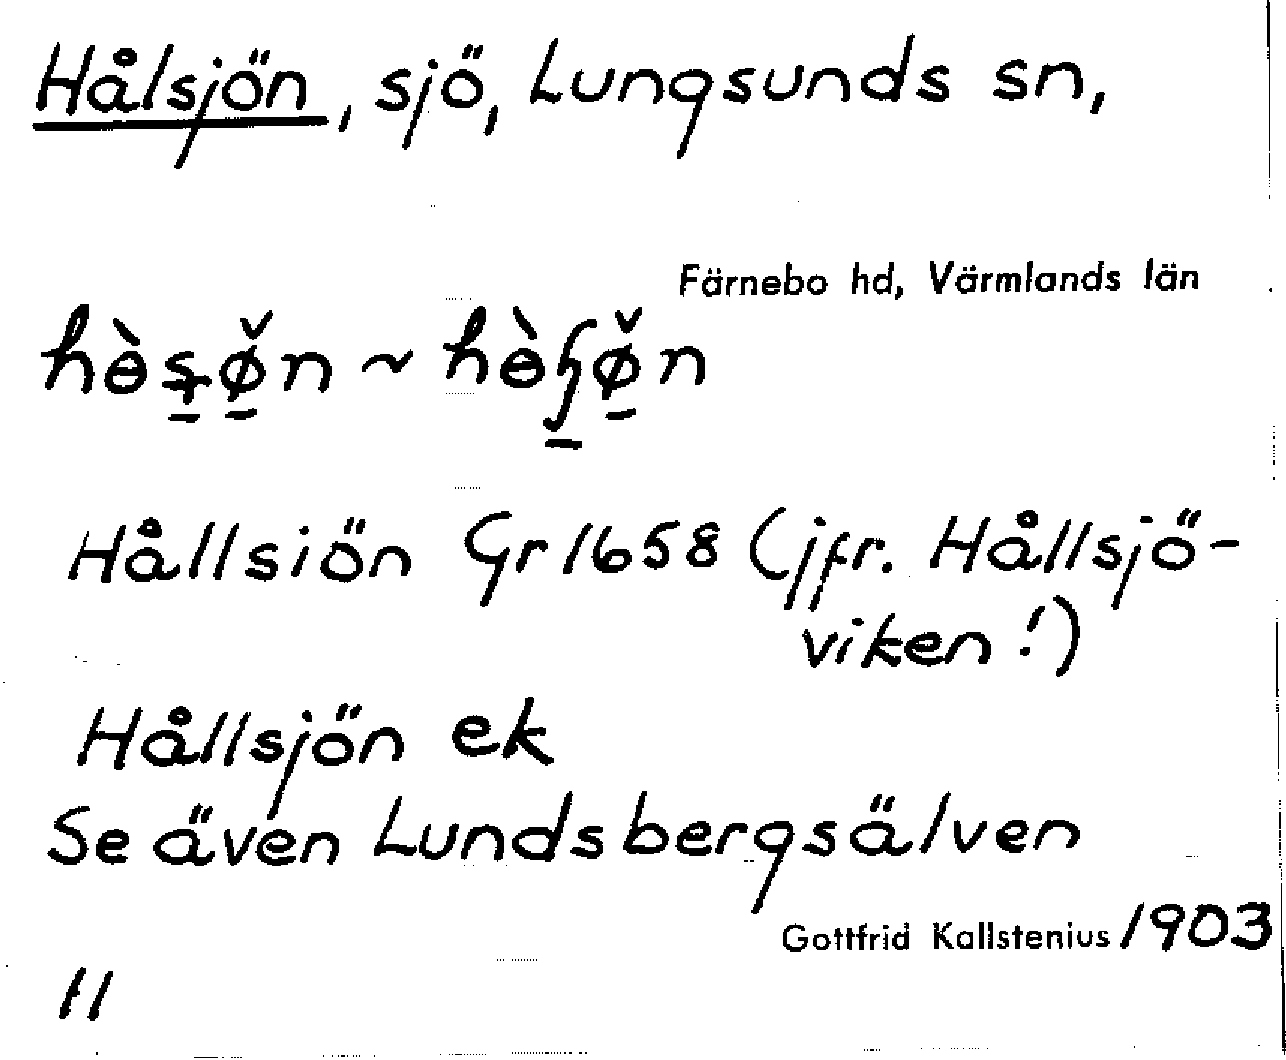 Hålsjön, sjö, Lungsunds sn,
Färnebo hd, Värmlands län
Hållsiön Gr 1658 (jfr. Hållsjö-
viken!)
Hållsjön ek
Se även Lundsbergsälven
Gottfrid Kallstenius 1903
11